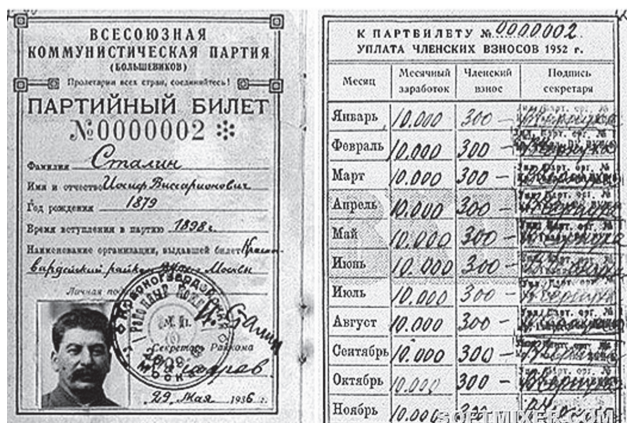 ВСЕСОЮЗНАЯ
КОММУНИСТИЧЕСКАЯ ПАРТИЯ
(БОЛЬШЕВИКОВ)
Пролетарии всех стран, соединяйтесь!
ПАРТИЙНЫЙ БИЛЕТ
№0000002
Фамилия Сталин
Имя и отчество Иосиф Виссарионович
Год рождения 1879
Время вступления в партию 1898г.
Наименование организации, выдавшей билет Красно
гвардейский райком Москвы
Личная
М. П.
Секретарь Райкома
МОСКВА
29 Мая 1936 г.
К ПАРТБИЛЕТУ №0000002
УПЛАТА ЧЛЕНСКИХ ВЗНОСОВ 1952 г.
Месяц Месячный заработок Членский взнос Подпись секретаря
Январь 10.000 300 –
Февраль 10.000 300 –
Март 10.000 300 –
Апрель 10.000 300 –
Май 10.000 300 –
Июнь 10.000 300 –
Июль 10.000 300 –
Август 10.000 300 –
Сентябрь 10.000 300 –
Октябрь 10.000 300 –
Ноябрь 10.000 300 –
SOFTMIXER.COM